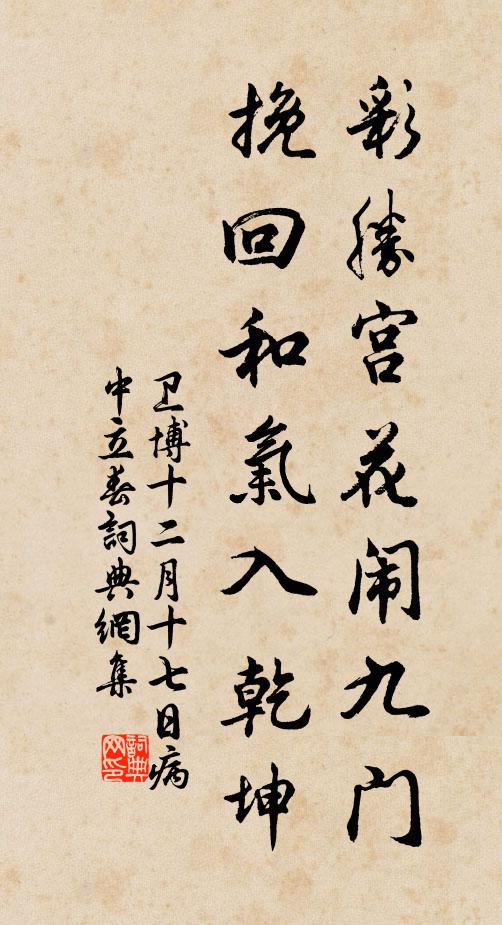 彩勝宫花闹九门
挽回和氣入乾坤
卫博十二月十七日病
中立春詞典網集
詞典网印